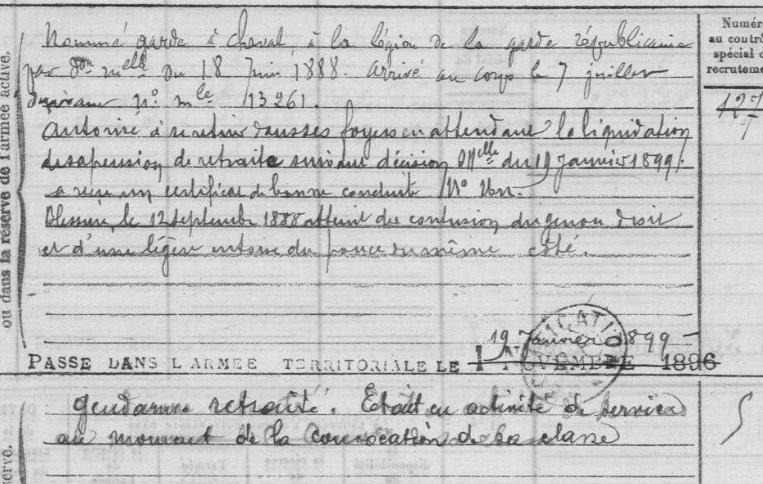 Numér
au contrô
spécial d
recruteme
127
Nommé garde à cheval, à la légion de la garde républicaine
par don melle du 18 Juin 1888. arrivé au corps le 7 juillet
suivant no mle 13261.
Autorisé à se retirer dans ses foyers en attendant la liquidation
de sa pension de retraite suivant décision Mlle du 19 Janvier 1899.
a reçu un certificat de bonne conduite No
Blessure, le 12 septembre 1888 atteint de contusion du genou droit
et d'une légère entorse du pouce du même côté.
ou dans la réserve de l'armée active.
19 Janvier 1899
PASSÉ DANS L'ARMÉE TERRITORIALE LE 1 NOVEMBRE 1896
gendarme retraité. Etait en activité de service
au moment de la convocation de sa classe
serve.